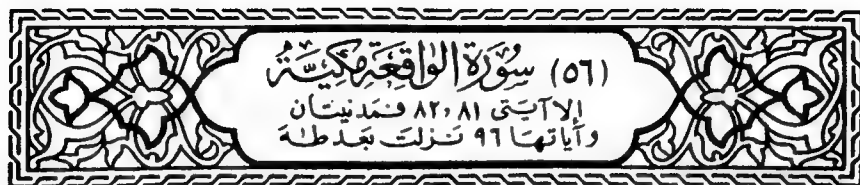 (٥٦) سُورَة الوَاقِعَة مَكِّيَّة
إلا آيتى ٨١ ، ٨٢ فمدنيتان
وآياتها ٩٦ نزلت بعد طه